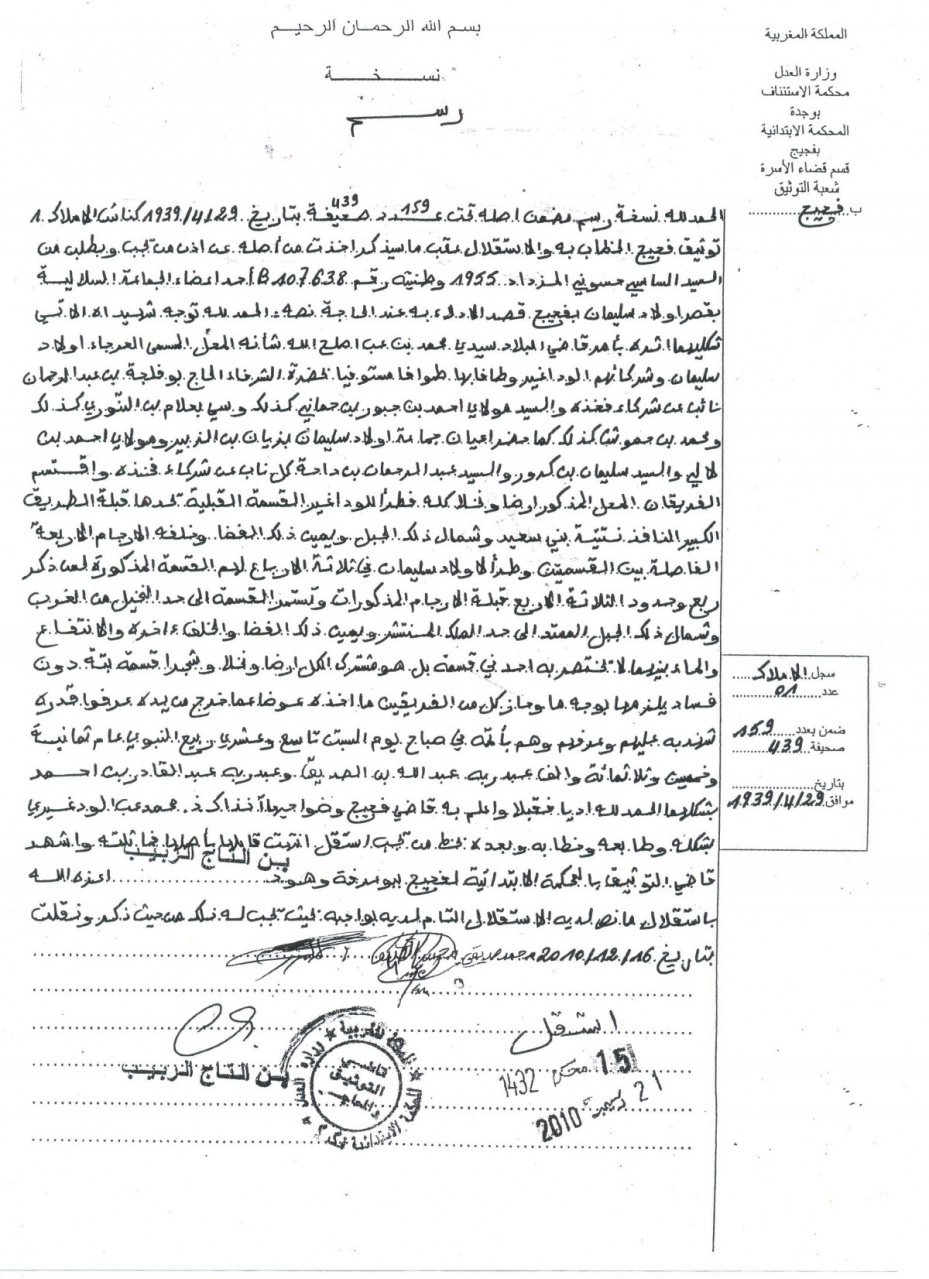 بسم الله الرحمان الرحيم
نسخة
رسم
المملكة المغربية
وزارة العدل
محكمة الاستئناف
بوجدة
المحكمة الابتدائية
بفجيج
قسم قضاء الأسرة
شعبة التوثيق
ب فجيج
الحمد لله نسخة رسم مضمن اصله تحت عدد 159 صحيفة 439 بتاريخ 1939/4/29 كناش الاملاك 1
توثيق فجيج الخطاب به والاستقلال عقب ما سيذكر اخذت من أصله عن اذن من تجب وبطلب من
السيد السامي حسوني المزداد 1955 وطنيته رقم 107638 احد اعضاء الجماعة السلالية
بقصر اولاد سليمان بفجيج قصد الادلاء به عند الحاجة نصه الحمد لله توجه شهيداه الاتي
شكلهما اثره بأمر قاضي البلاد سيدي محمد بن عب اصلح الله شأنه المحل المسمى العرجاء اولاد
سليمان وشركائهم الوداغير وطافا بها طوافا مستوفيا بحضرة الشرفاء الحاج بوفلجة بن عبد الرحمان
نائبا عن شركاء فخذه والسيد مولاي احمد بن جبور بن حماني كذلك وسي بعلام بن النوري كذلك
ومحمد بن حمو كذلك كما حضر اعيان جماعة اولاد سليمان بزيان بن الزبير ومولاي احمد بن
لالي والسيد سليمان بن كرور والسيد عبد الرحمان بن داحة كل ناب عن شركاء فخذه واقتسم
الفريقان المحل المذكور ارضا ونخلا كله فطرأ للوداغير القسمة القبلية تحدها قبلة الطريق
الكبير النافذ بني سعيد وشمال ذلك الجبل ويمين ذلك الفضا وخلفه الارجام الاربعة
الفاصلة بين القسمين وطرأ لاولاد سليمان في ثلاثة الارباع لهم القسمة المذكورة لمن ذكر
ربع وحدود الثلاثة الاربع قبلة الارجام المذكورات وتستمر القسمة الى حد النخيل من الغرب
وشمال ذلك الجبل الممتد الى حد الملك المنتشر ويمين ذلك الفضا والخلفاء اخره والانتفاع
والماء بينهما لا تختص به احد في قسمة بل هو مشترك الكل ارضا ونخلا وشجرا قسمة بتة دون
فساد يلزمها بوجه ما وحاز كل من الفريقين ما اخذه عوضا عما خرج من يده عرفوا قدره
شهد به عليهم وعرفهم وهم بأتمه في صباح يوم السبت تاسع وعشري ربيع النبوي عام ثمانية
وخمسين وثلاثمائة والف عبد ربه عبد الله بن الصديق وعبد ربه عبد القادر بن احمد
بشكلهما الحمد لله اديا فقبلا واعلم به قاضي فجيج وضواحيها محمد عب الودغيري
بشكله وطابعه وخطابه وبعده بخط من تجب استقل انتهت قابلها بأصلها فماثلته واشهد
قاضي التوثيق بالمحكمة الابتدائية لفجيج ببوعرفة وهو بن التاج الزبيب اعزه الله
باستقلال ما نص لديه الاستقلال التام لديه بواجبه بحيث تجب له ذلك من حيث ذكر ونقلت
بتاريخ 2010/12/16
استقل
15 محرم 1432
21 دسمبر 2010
بن التاج الزبيب
قاضي
التوثيق
سجل الاملاك
عدد 01
ضمن بعدد 159
صحيفة 439
بتاريخ
موافق 1939/4/29